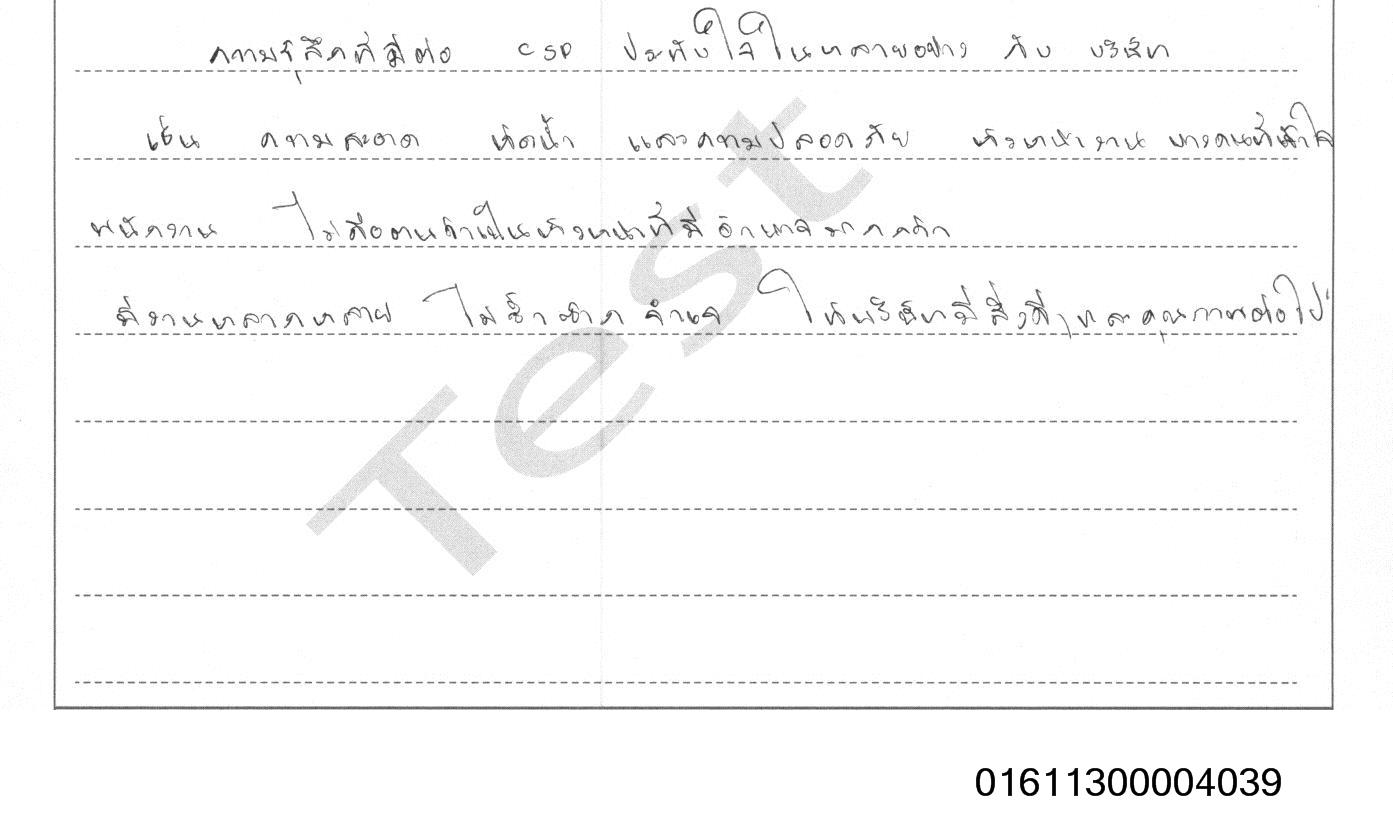 ความรู้สึกที่มีต่อ CSP ประทับใจในหลายอย่าง กับ บริษัท
เช่น ความสะอาด ห้องน้ำ และความปลอดภัย หัวหน้างาน บางคนที่เข้าใจ
พนักงาน ไม่ถือตนว่าเป็นหัวหน้าที่มีอำนาจมากกว่า
มีงานหลากหลาย ไม่ซ้ำซาก จำเจ ให้บริษัทมีสิ่งดีๆ และคุณภาพต่อไป
Test
01611300004039